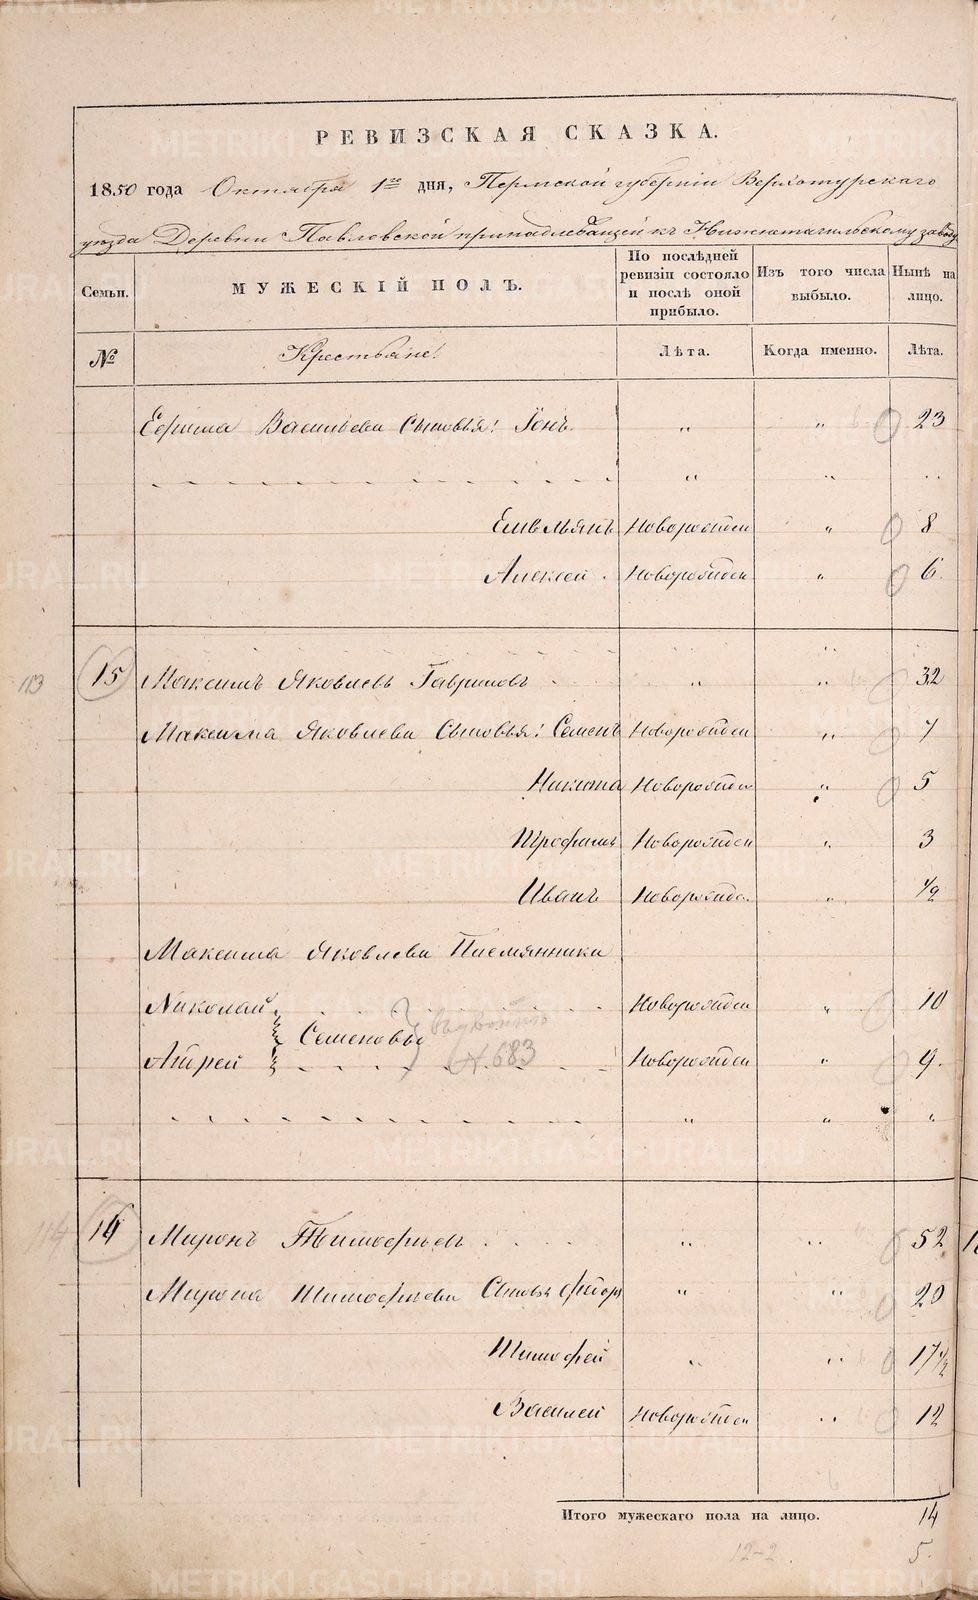 РЕВИЗСКАЯ СКАЗКА.
1850 года Октября 1го дня, Пермской губернiи Верхотурскаго
уезда Деревни Павловской принадлежащей къ Нижнетагильскому заводу
Семьи. МУЖЕСКIЙ ПОЛЪ. По послѣдней ревизiи состояло и послѣ оной прибыло. Изъ того числа выбыло. Нынѣ на лицо.
№ Крестьяне! Лѣта. Когда именно. Лѣта.
Ефима Васильева Сыновья: Iонъ " " 23
" " "
Емельянъ Новорожден " 8
Алексей Новорожден " 6
113 15 Максимъ Яковлевъ Гавриловъ " " 32
Максима Яковлева Сыновья: Семенъ Новорожден " 7
Никита Новорожден " 5
Трофимъ Новорожден " 3
Иванъ Новорожде. " 1/2
Максима Яковлева Племянники
Николай Новорожден " 10
Семеновы
Андрей № 683 Новорожден " 9
" " "
114 14 Миронъ Тимофеевъ " " 52
Мирона Тимофеева Сыновья Федоръ " " 20
Тимофей " " 17 1/2
Василей Новорожден " 12
Итого мужескаго пола на лицо. 14
12-2 5.
METRIKI.GASO-URAL.RU